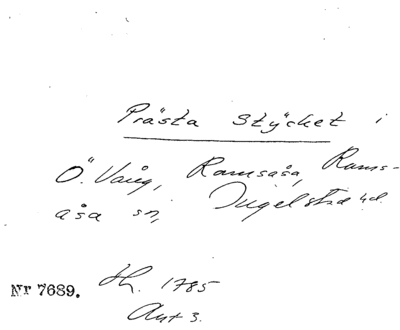 Prästa Stycket i
Ö. Vång, Ramsåsa, Rams-
åsa sn, Ingelsta hd.
Nr 7689. Hh. 1785
Akt 3.